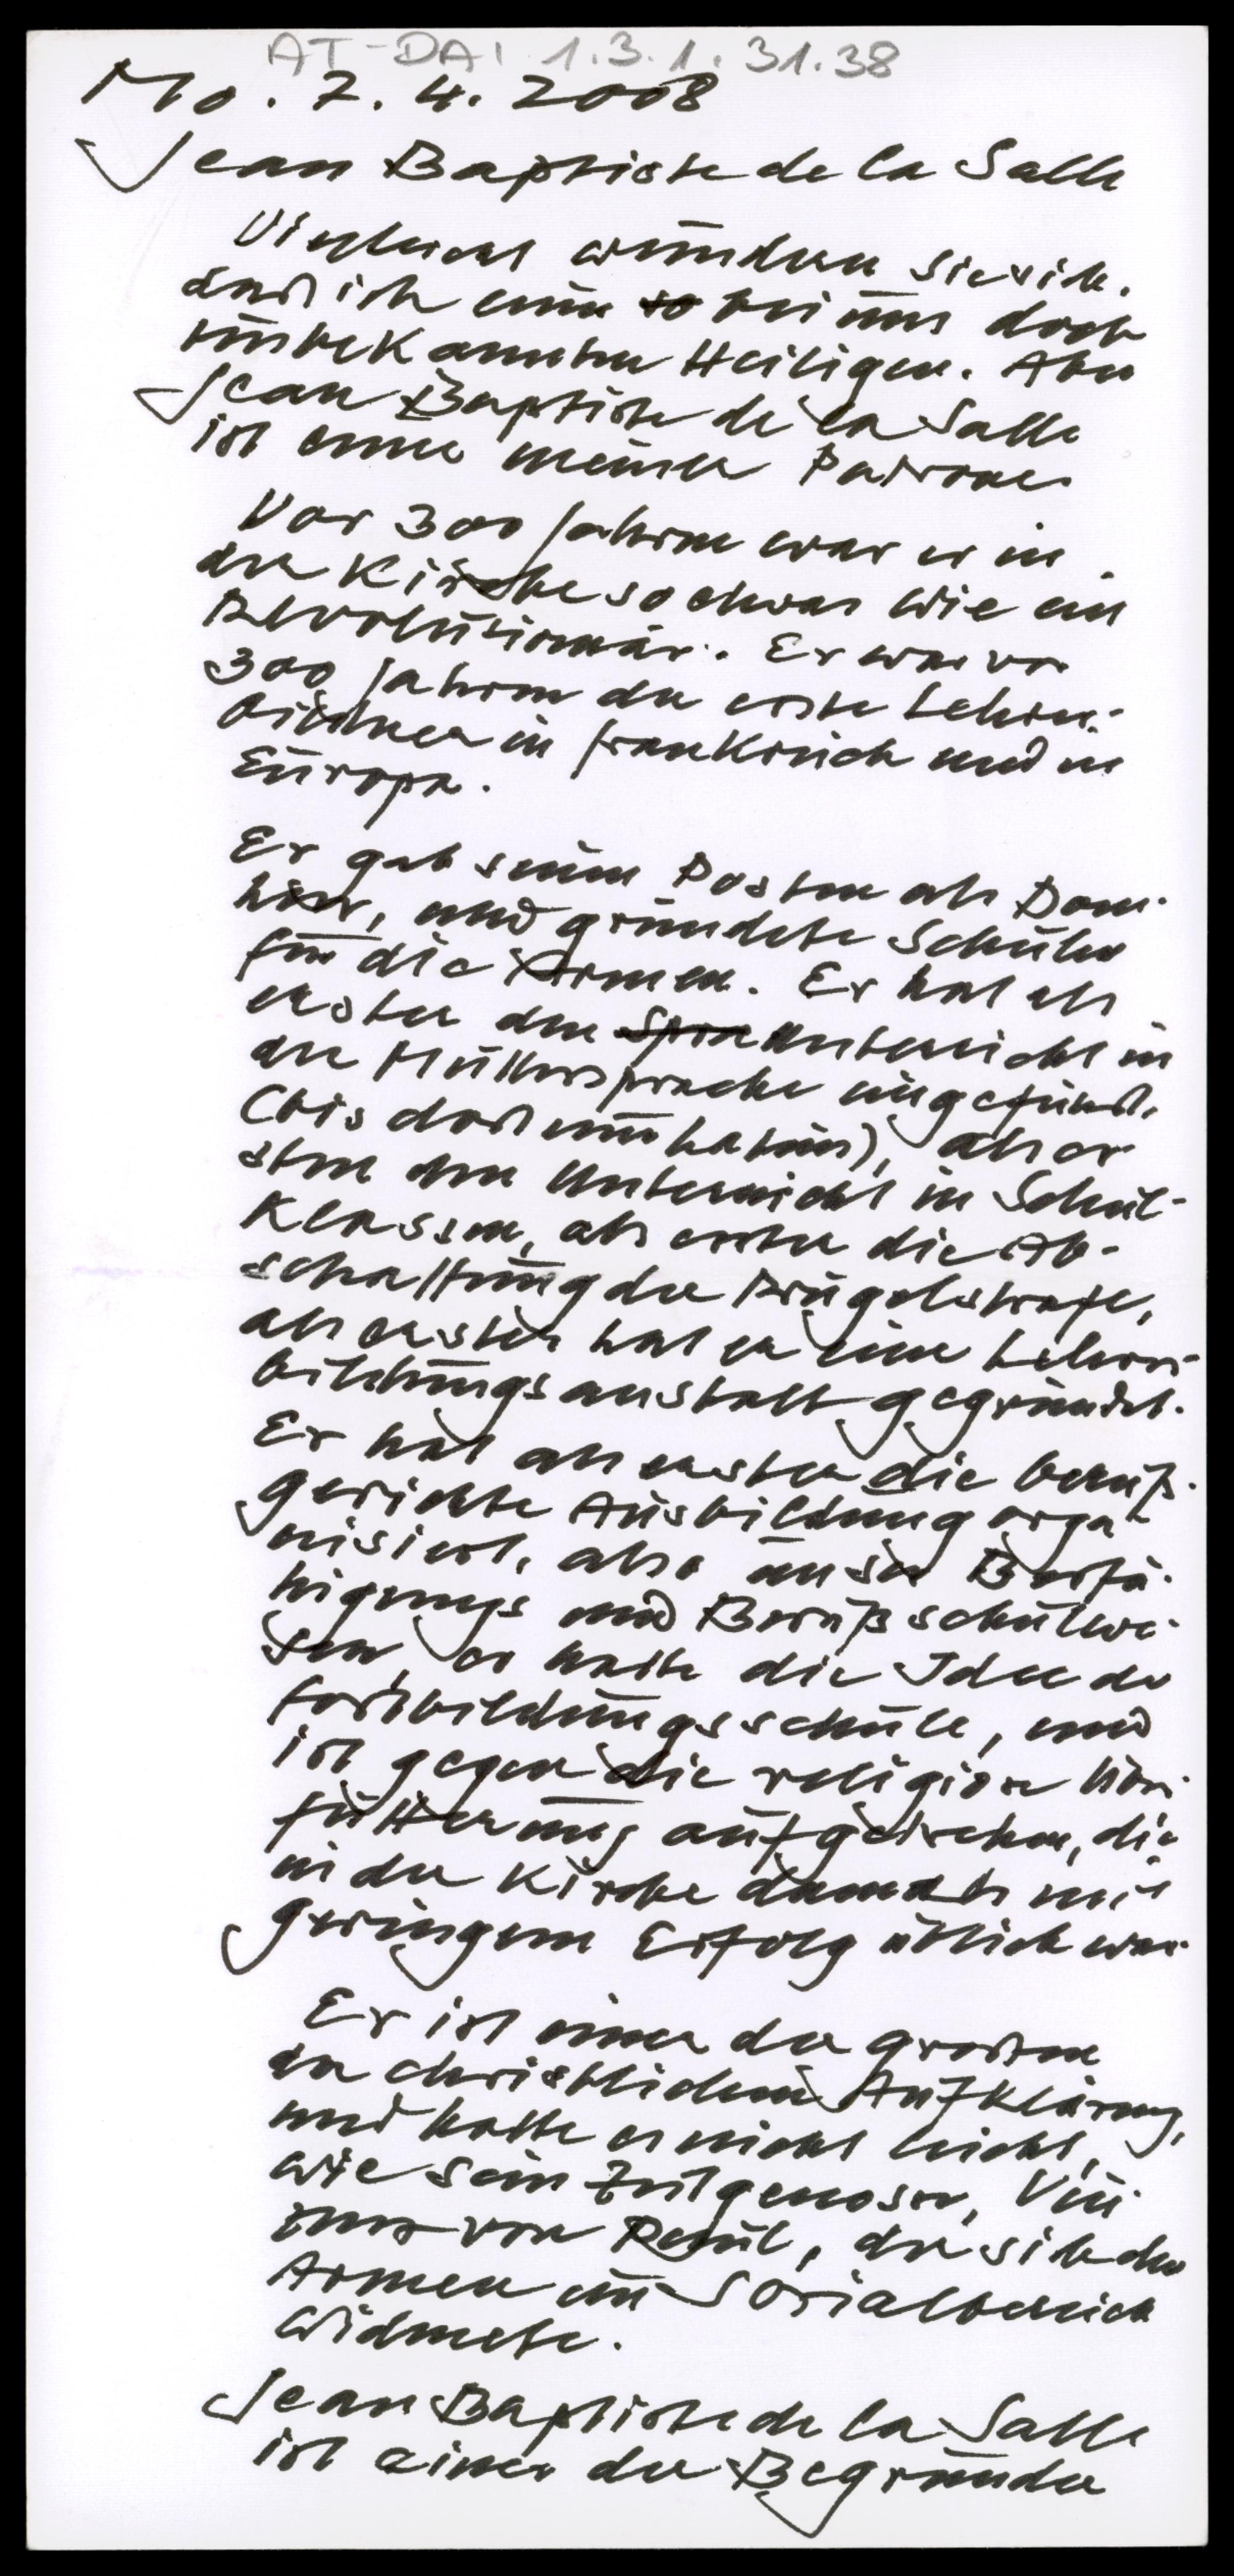 AT-DAI 1.3.1.31.38
Mo. 7. 4. 2008
Jean Baptiste de la Salle
Vielleicht wundern Sie sich,
daß ich einen ~~so~~ bei uns doch
unbekannten Heiligen. Aber
Jean Baptiste de la Salle
ist einer meiner Patrone.
Vor 300 Jahren war er in
der Kirche so etwas wie ein
Revolutionär. Er war vor
300 Jahren der erste Lehrer-
bildner in Frankreich und in
Europa.
Er gab seinen Posten als Dom-
herr, und gründete Schulen
für die Armen. Er hat als
erster den ~~Spra~~ Unterricht in
der Muttersprache eingeführt,
(bis dort nur Latein), als er-
ster den Unterricht in Schul-
klassen, als erster die Ab-
schaffung der Prügelstrafe,
als erster hat er eine Lehrer-
bildungsanstalt gegründet.
Er hat als erster die berufs-
gerichte Ausbildung orga-
nisiert, also unser
und Berufsschulwe-
sen, er hatte die Idee der
Fortbildungsschule, und
ist gegen die religiöse
fütterung aufgetreten, die
in der Kirche damals mit
geringem Erfolg üblich war.
Er ist einer der großen
der christlichen Aufklärung,
und hatte es nicht leicht,
wie sein Zeitgenosse, Vin-
zenz von Paul, der sich den
Armen im Sozialbereich
widmete.
Jean Baptiste de la Salle
ist einer der Begründer